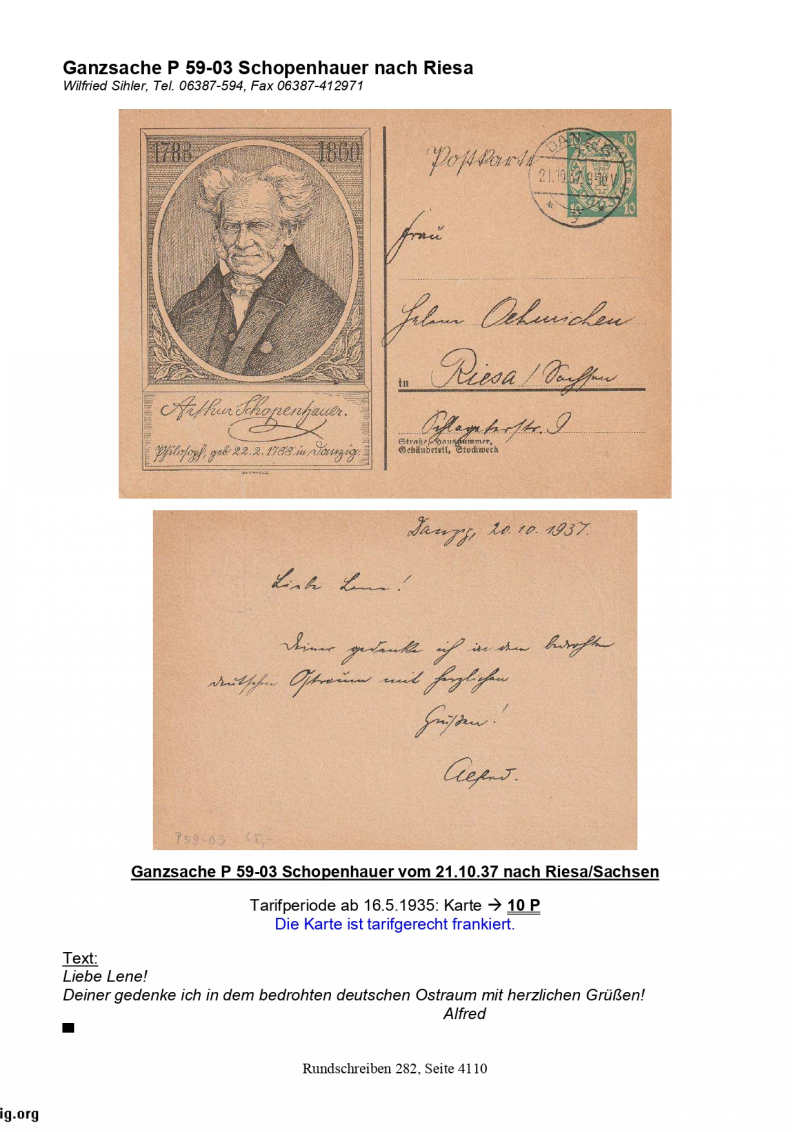 Ganzsache P 59-03 Schopenhauer nach Riesa
Wilfried Sihler, Tel. 06387-594, Fax 06387-412971
1788 1860
Arthur Schopenhauer.
Philosoph, geb 22.2.1788 in Danzig.
Postkarte
DANZIG
21.10.37
10 10
10 10
Frau
Helene Oehmichen
in Riesa / Sachsen
Schlageterstr. 9
Straße, Hausnummer,
Gebäudeteil, Stockwerk
Danzig, 20.10.1937.
Liebe Lene!
Deiner gedenke ich in dem bedrohten
deutschen Ostraum mit herzlichen
Grüßen!
Alfred.
P59-03 65,-
Ganzsache P 59-03 Schopenhauer vom 21.10.37 nach Riesa/Sachsen
Tarifperiode ab 16.5.1935: Karte → 10 P
Die Karte ist tarifgerecht frankiert.
Text:
Liebe Lene!
Deiner gedenke ich in dem bedrohten deutschen Ostraum mit herzlichen Grüßen!
Alfred
Rundschreiben 282, Seite 4110
ig.org